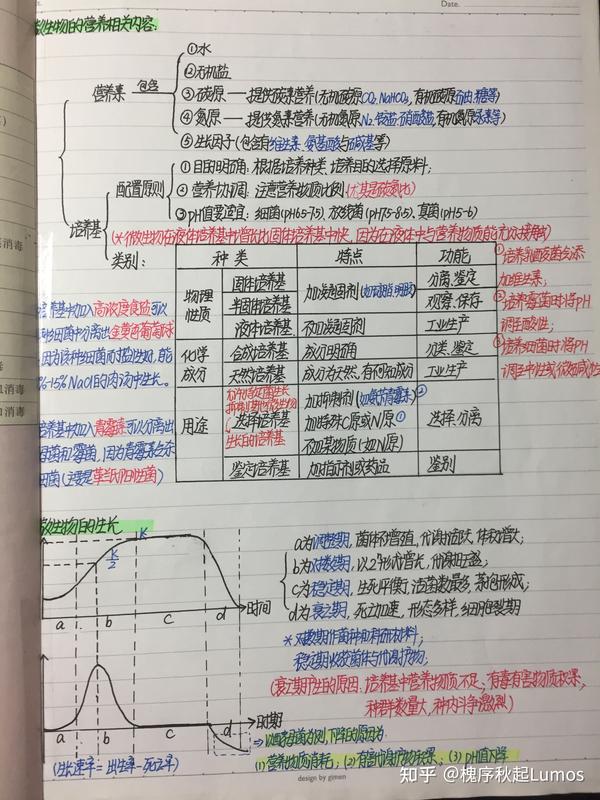 Date.
微生物的营养相关内容:
营养素 包含
①水
②无机盐
③碳源——提供碳素营养(无机碳源CO₂、NaHCO₃,有机碳源石油、糖等)
④氮源——提供氮素营养(无机氮源N₂、铵盐、硝酸盐,有机氮源尿素等)
⑤生长因子(包含有维生素、氨基酸与碱基等)
配置原则
①目的明确:根据培养种类、培养目的选择原料;
④营养协调:注意营养物质比例(尤其是碳氮比)
③pH值要适宜:细菌(pH6.5-7.5)、放线菌(pH7.5-8.5)、真菌(pH5-6)
培养基
(*微生物在液体培养基中增长比固体培养基中快,因为在液体中与营养物质能充分接触)
类别:
种类 特点 功能
物理性质
固体培养基 分离、鉴定
半固体培养基 加凝固剂 观察、保存
液体培养基 不加凝固剂 工业生产
化学成分
合成培养基 成分明确 分类、鉴定
天然培养基 成分为天然,有何知成分 工业生产
用途
选择培养基
生长的培养基
加抑制剂(如加青霉素)②
加特殊C源或N源①
不加某物质(如N源)
选择、分离
鉴定培养基 加指示剂或药品 鉴别
①培养乳酸菌会添
加维生素;
②培养霉菌时将pH
调至酸性;
③培养细菌时将pH
调至中性或微碱性
培养基中加入高浓度食盐可以
菌中分离出金黄色葡萄球
%-15%NaCl的肉汤中生长。
培养基中加入青霉素可以分离出
母菌和霉菌,因为青霉素会杀
细菌(主要是革兰氏阳性菌)
消毒
消毒
消毒
微生物的生长
K
K/2
时间
a b c d
a为调整期,菌体不增殖,代谢活跃,体积增大;
b为对数期,以2ⁿ形式增长,代谢旺盛;
c为稳定期,生死平衡,活菌数最多,芽孢形成;
d为衰亡期,死亡加速,形态多样,细胞裂解期
*对数期作菌种和科研材料;
稳定期收获菌体与代谢产物;
(衰亡期产生的原因:培养基中营养物质不足,有毒有害物质积累,
种群数量大,种内斗争激烈)
时期
a b c d
(生长速率=出生率-死亡率)
⇒以酵母菌为例,下降的原因为
(1)营养物质消耗;(2)有害代谢产物积累;(3)pH值下降
design by gimen
知乎 @槐序秋起Lumos